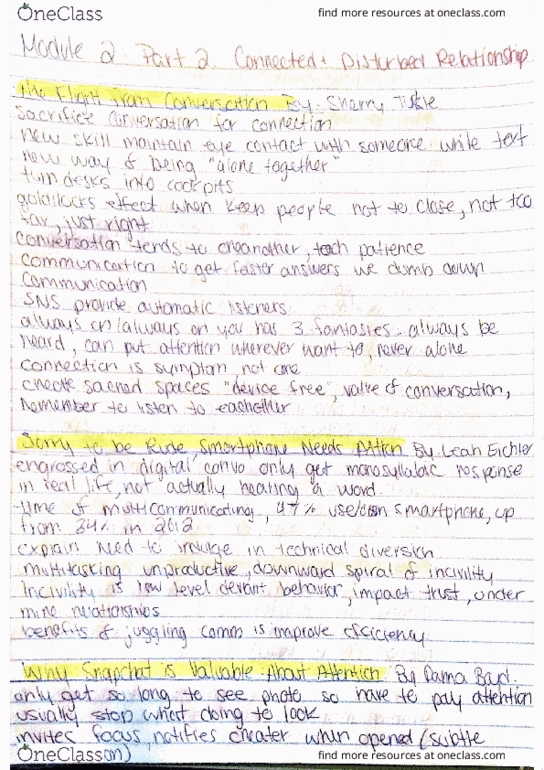 OneClass
find more resources at oneclass.com
Module 2 Part 2 Connected + Disturbed Relationship
The Flight from Conversation By: Sherry Turkle
sacrifice conversation for connection
new skill maintain eye contact with someone while text
new way of being "alone together"
turn desks into cockpits
goldilocks effect when keep people not to close, not too
far, just right
conversation tends to eneanother, teach patience
communication to get faster answers we dumb down
communication
SNS provide automatic listeners
always on/always on you has 3 fantasies - always be
heard, can put attention wherever want to, never alone
connection is symptom, not cure
create sacred spaces "device free", value of conversation,
remember to listen to eachother
Sorry to be Rude, Smartphone Needs Attion By Leah Eichler
engrossed in digital convo only get monosyllabic response
in real life, not actually hearing a word.
time of multicommunicating, 47% use/own smartphone, up
from 34% in 2012
explain need to indulge in technical diversion
multitasking unproductive, downward spiral of incivility
Incivility is low level deviant behavior, impact trust, under
mine relationships
benefits of juggling comm is improve efficiency
Why Snapchat is Valuable: About Attention By Danna Boyd.
only get so long to see photo so have to pay attention
usually stop whist doing to look
invites focus, notifies creater when opened (subtle
on)
OneClass
find more resources at oneclass.com